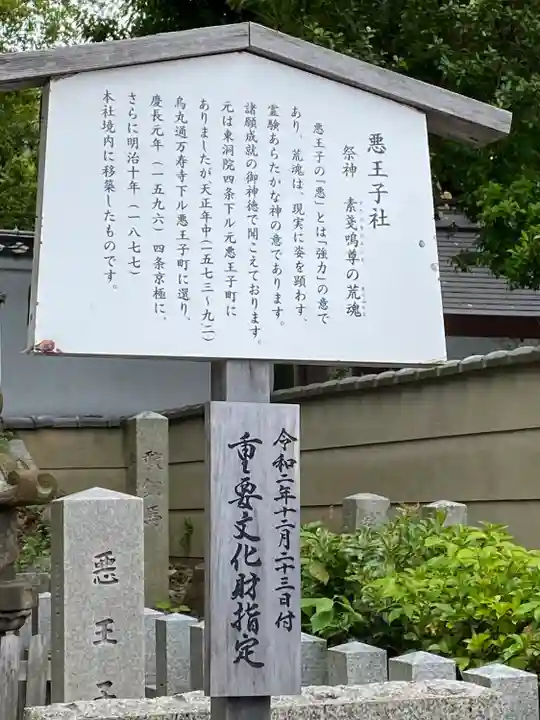 悪王子社
祭神 素戔嗚尊の荒魂
悪王子の「悪」とは「強力」の意で
あり、荒魂は、現実に姿を顕わす、
霊験あらたかな神の意であります。
諸願成就の御神徳で聞こえております。
元は東洞院四条下ル元悪王子町に
ありましたが、天正年中(一五七三~九二)
烏丸通万寿寺下ル悪王子町に還り、
慶長元年(一五九六)四条京極に、
さらに明治十年(一八七七)
本社境内に移築したものです。
令和二年十二月二十三日付
重要文化財指定
悪王子